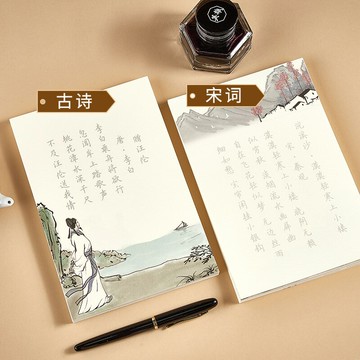 古诗
宋词
赠汪伦
唐 李白
李白乘舟将欲行
忽闻岸上踏歌声
桃花潭水深千尺
不及汪伦送我情
浣溪沙 漠漠轻寒上小楼
漠漠轻寒上小楼 晓阴无赖
似穷秋 淡烟流水画屏幽
自在飞花轻似梦 无边丝雨
细如愁 宝帘闲挂小银钩